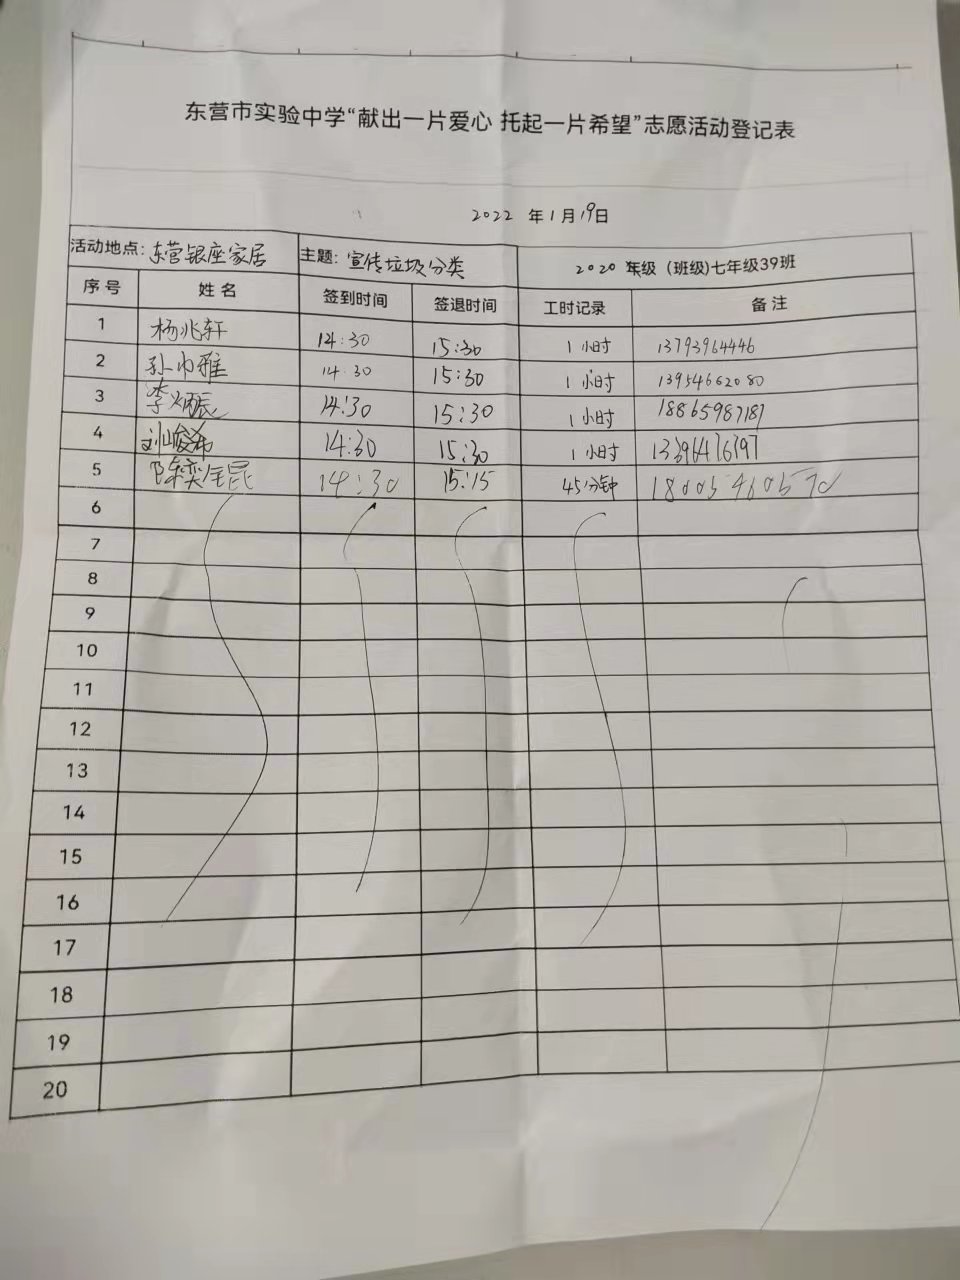 东营市实验中学“献出一片爱心 托起一片希望”志愿活动登记表
2022 年1月19日
活动地点：东营银座家居 主题：宣传垃圾分类 2020 年级（班级)七年级39班
序号 姓名 签到时间 签退时间 工时记录 备注
1 杨兆轩 14:30 15:30 1小时 13793964446
2 孙 雅 14:30 15:30 1小时 13954662080
3 李炳辰 14:30 15:30 1小时 18865987187
4 刘峻希 14:30 15:30 1小时
5 陈奕 14:30 15:15 45分钟
6
7
8
9
10
11
12
13
14
15
16
17
18
19
20